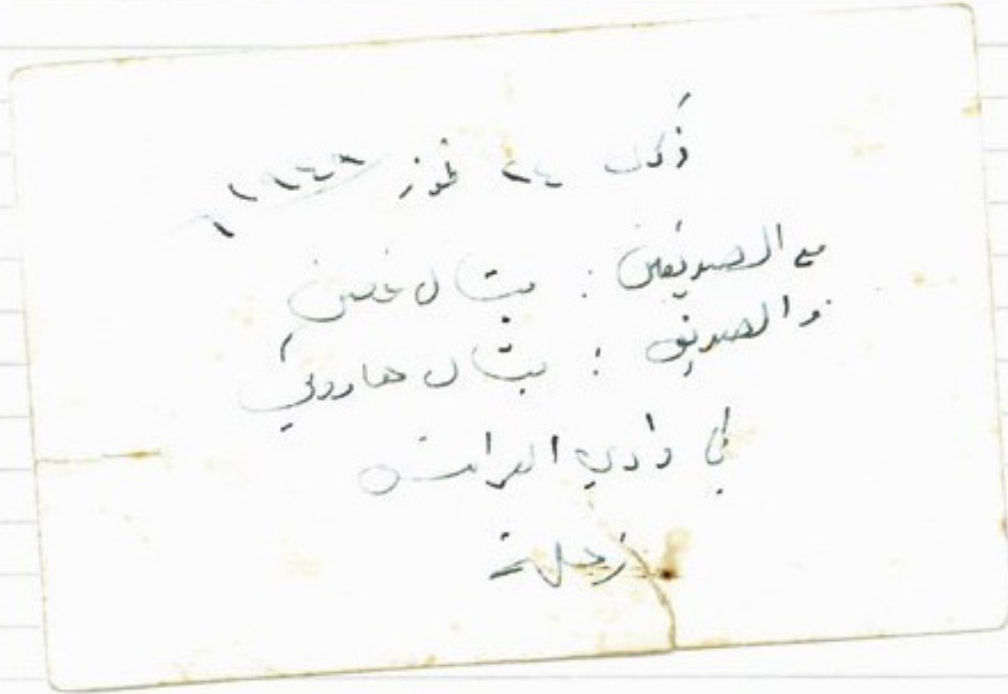 ذكرى ٢٤ تموز ١٩٤٩
مع الصديقين : ميشال غصين
والصديق : ميشال هاروني
في وادي العرائش
زحلة